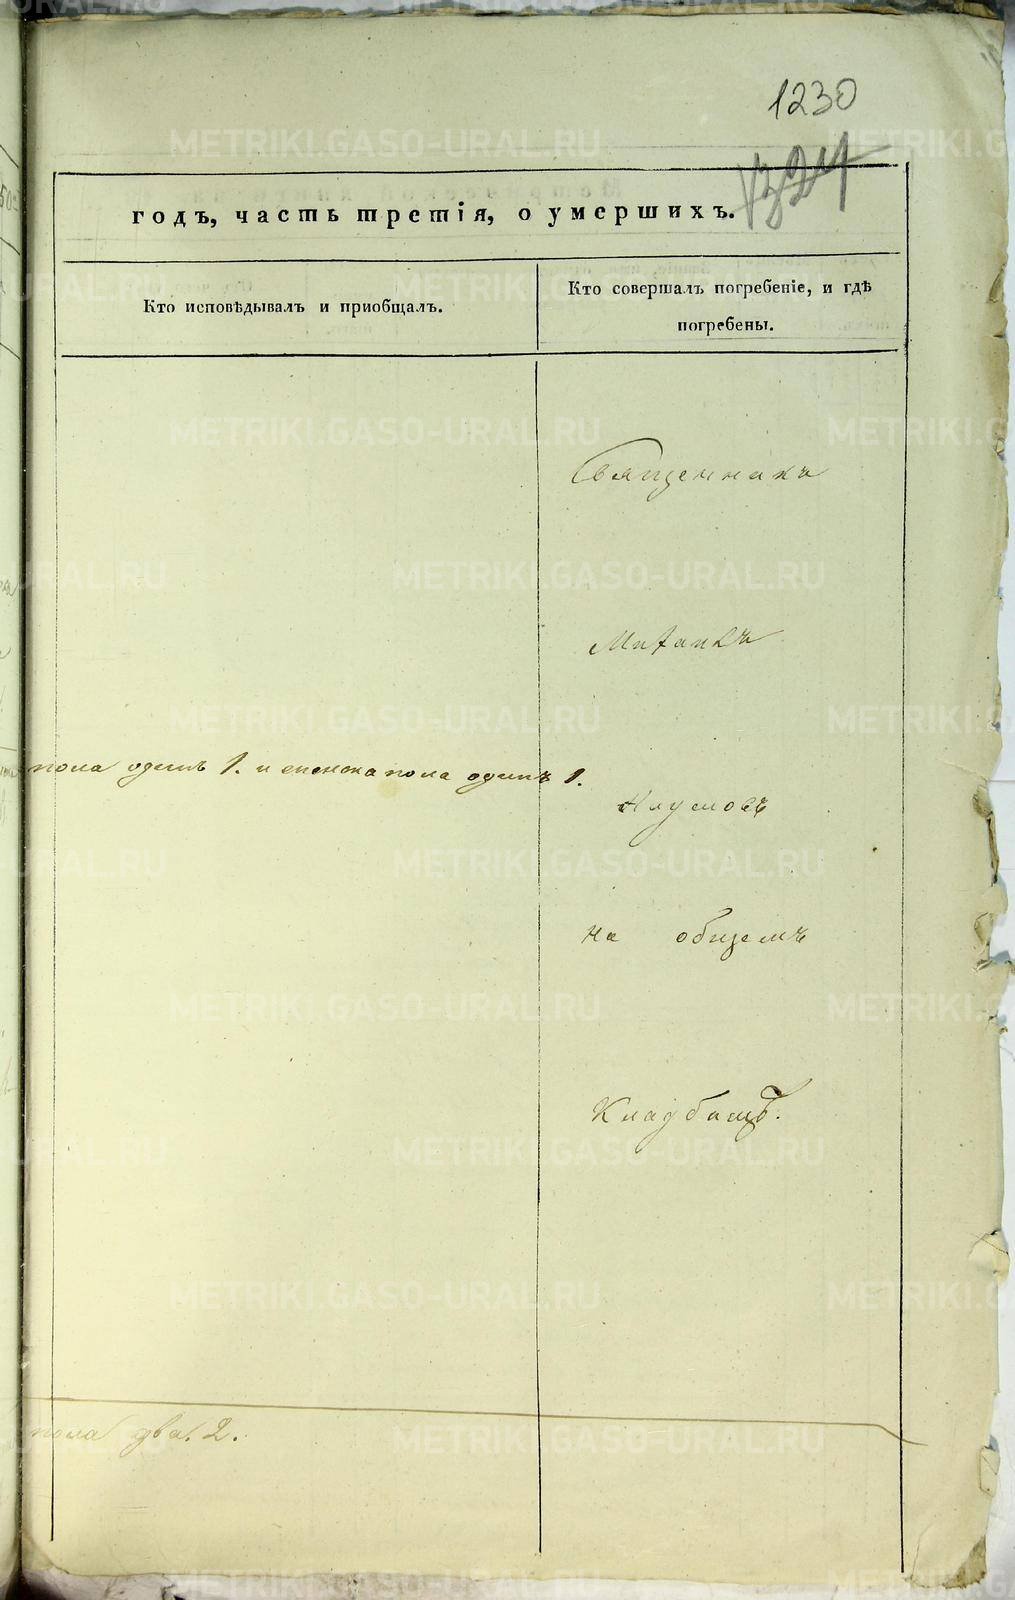 1230
1324
годъ, часть третія, о умершихъ.
Кто исповѣдывалъ и приобщалъ.
Кто совершалъ погребеніе, и гдѣ
погребены.
Священникъ
Михаилъ
пола одинъ 1. и женска пола одинъ 1.
Наумовъ
на общемъ
Кладбищѣ.
пола два. 2.
METRIKI.GASO-URAL.RU